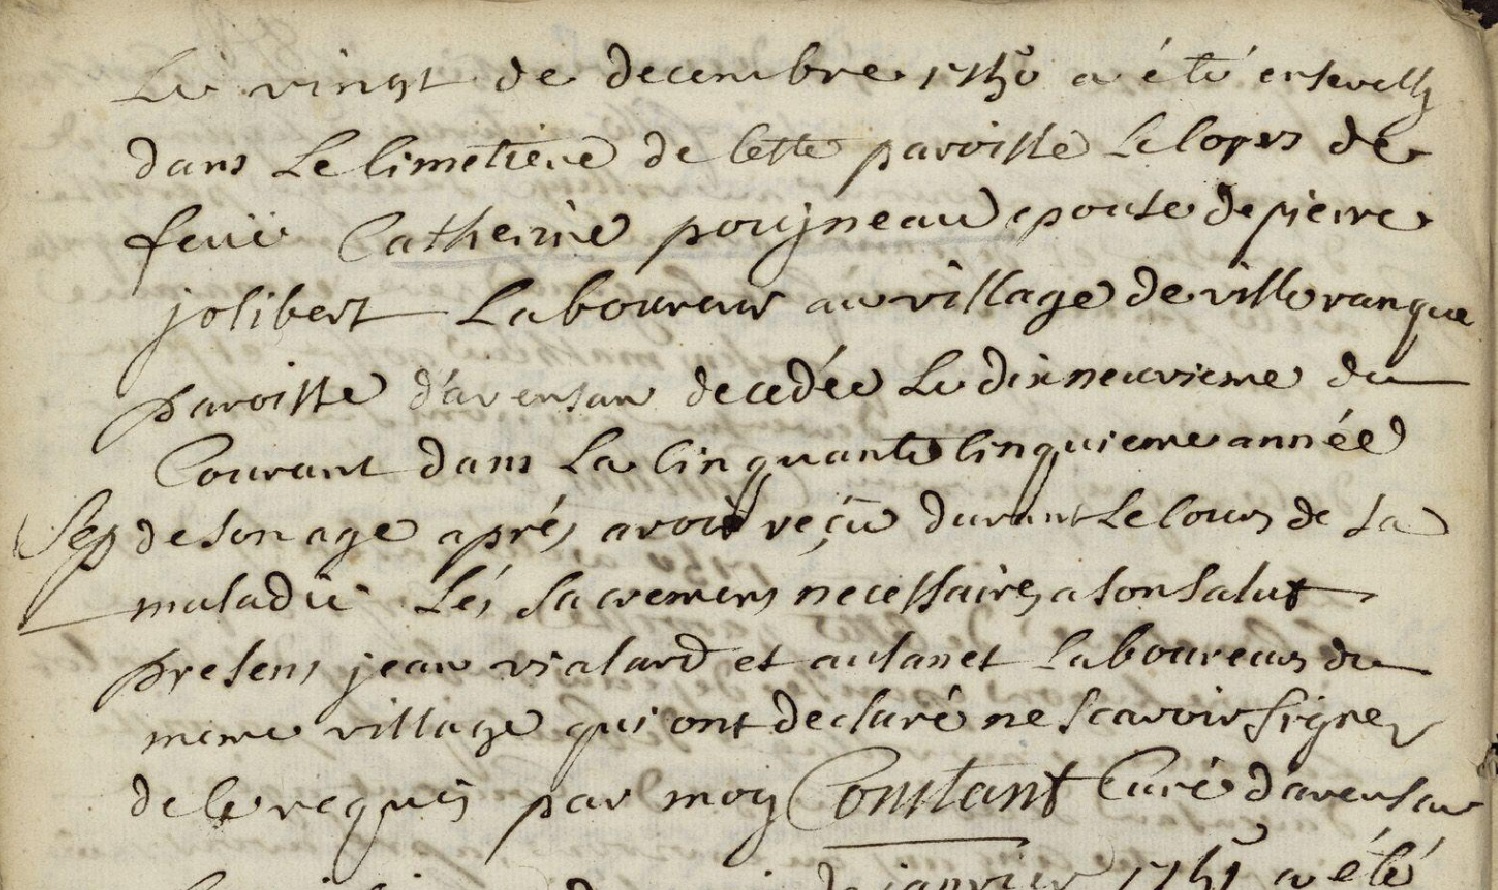 Le vingt de decembre 1750 a été ensevely
dans Le Cimetiere de Cette paroisse Le Corps de
feüe Catherine pougneau epouse de pierre
jolibert Laboureur au village de villeranque
paroisse d'avensan decedée Le dixneuvieme du
Courant dans La Cinquante Cinquieme année
Sep de son age aprés avoir reçu durant Le Cours de Sa
maladie Lés Sacremens necessaires a son Salut
presens jean vialard et ausanet Laboureurs du
meme village qui ont declaré ne Scavoir Signer
de Ce requis par moy Constant Curé d'avensan
janvier 1751 a été